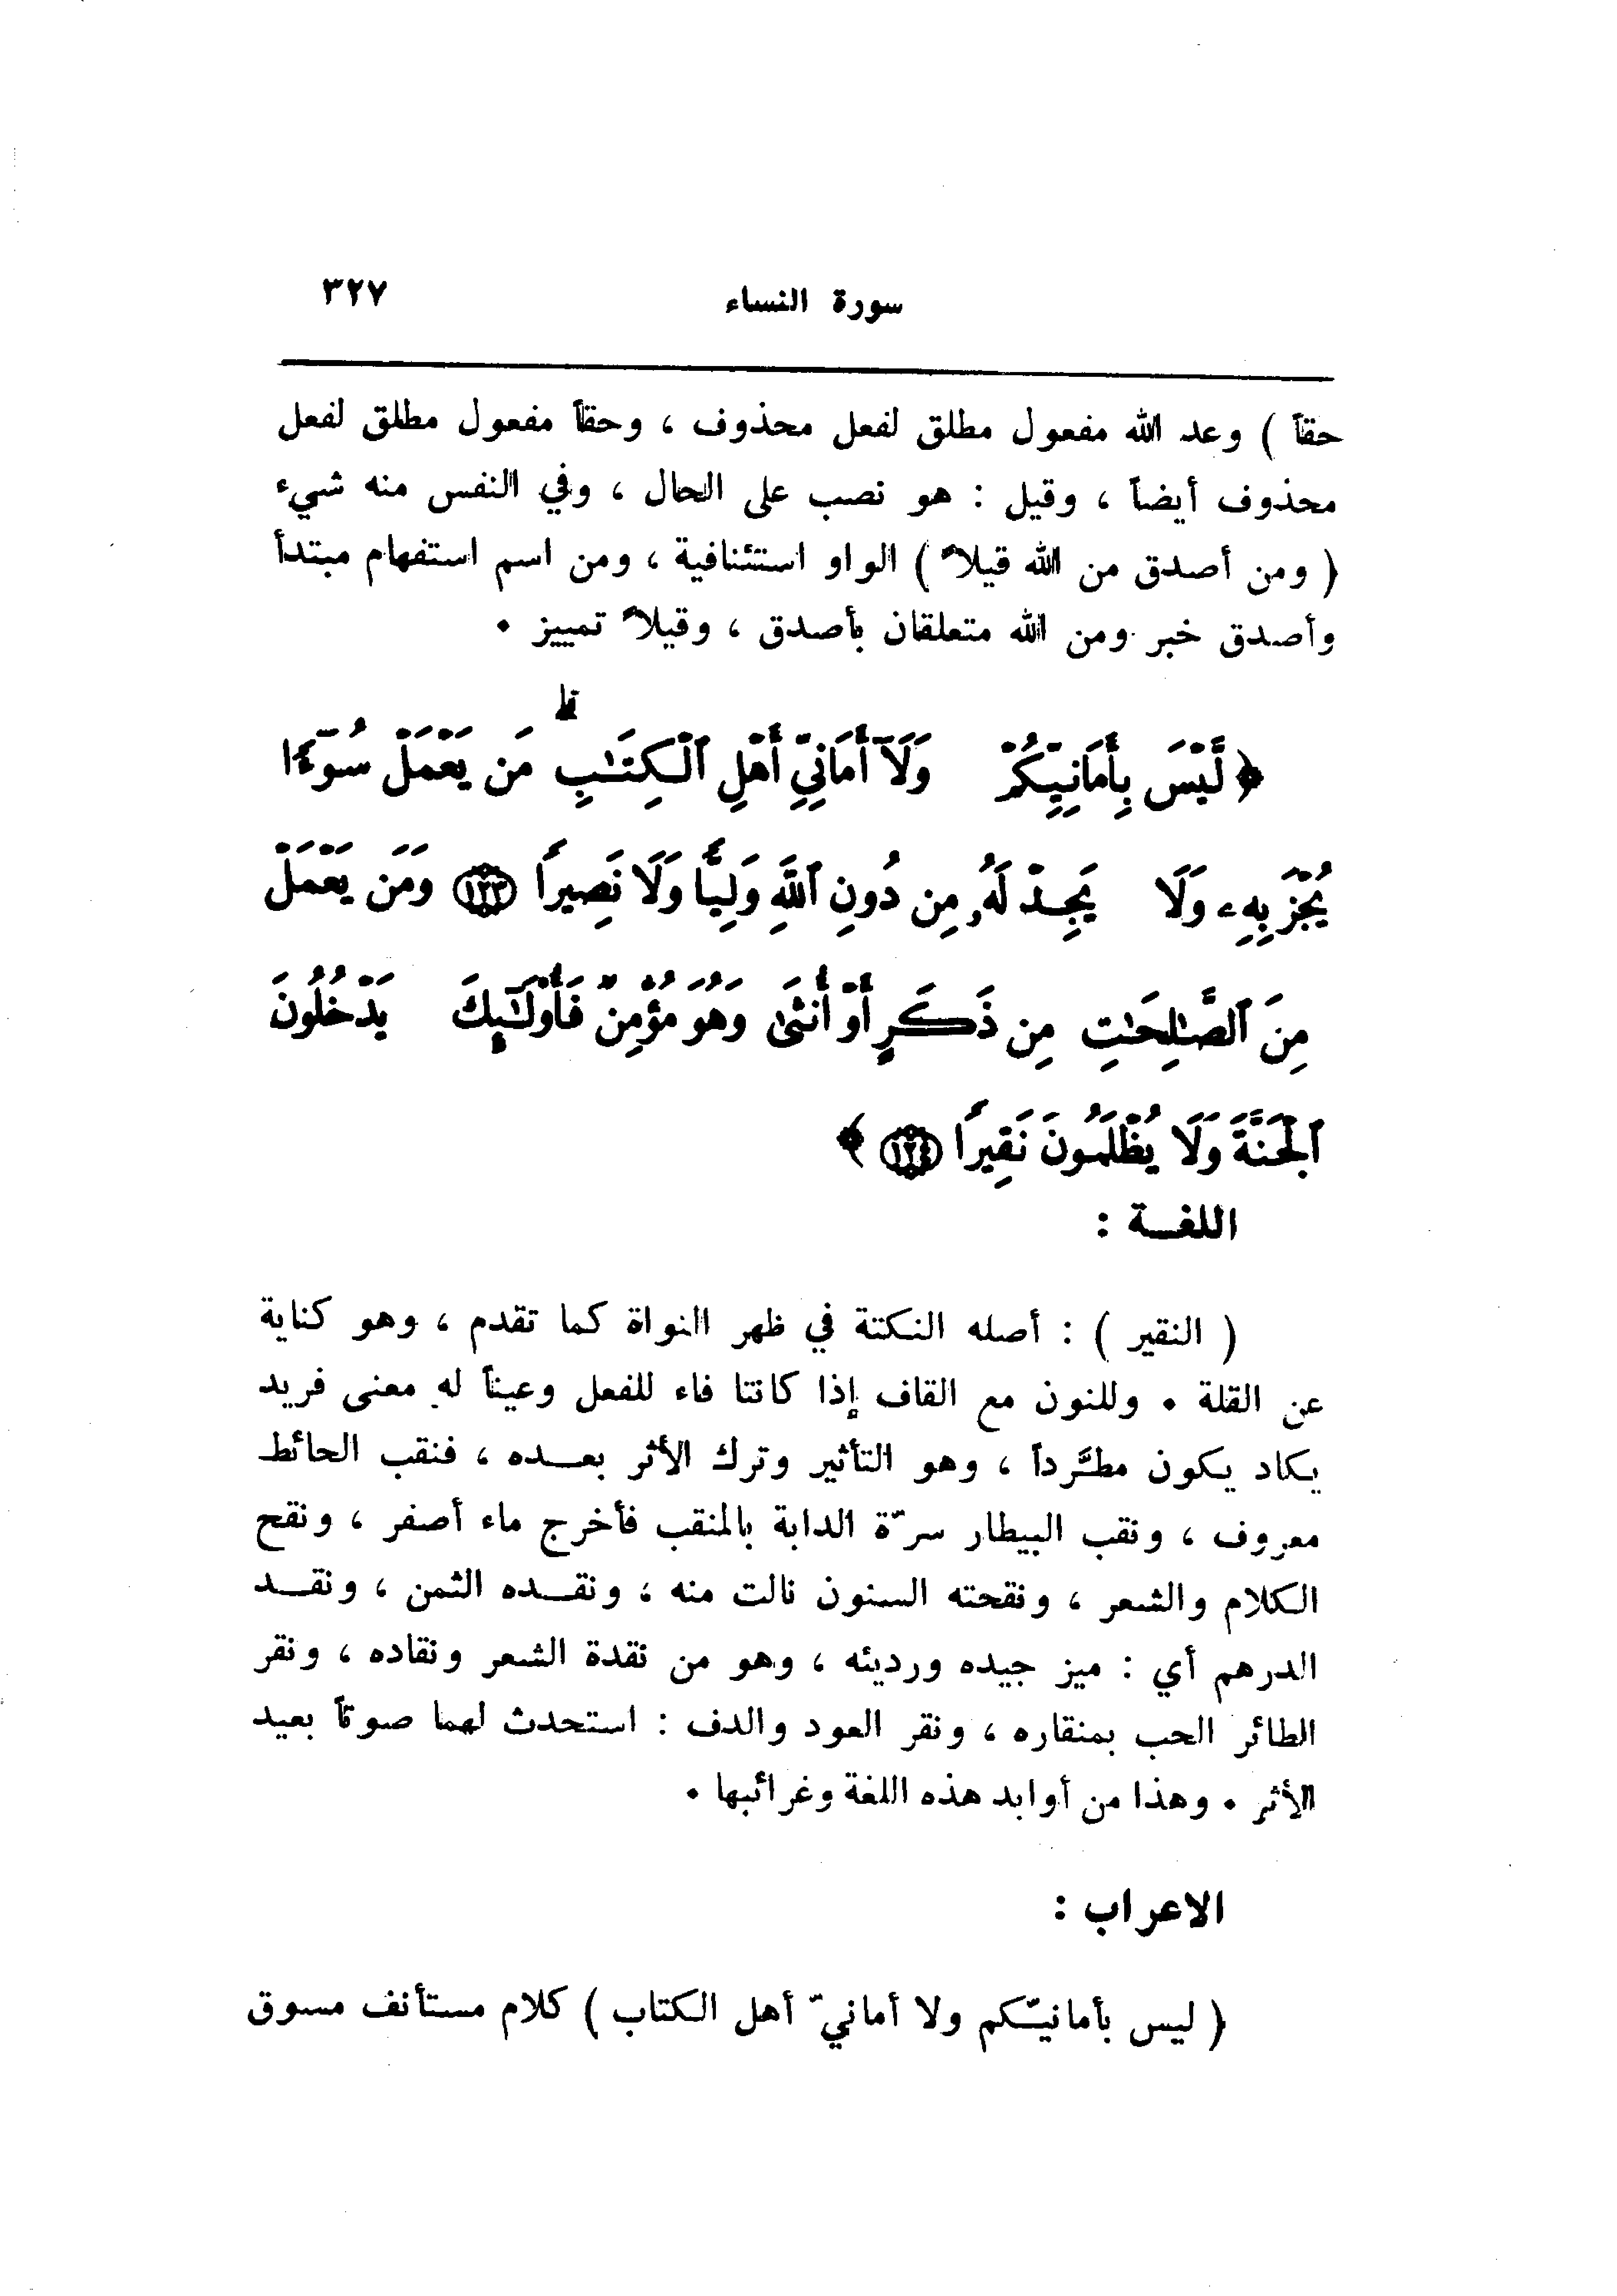 سورة النساء ٣٢٧
حقاً ) وعد الله مفعول مطلق لفعل محذوف ، وحقاً مفعول مطلق لفعل
محذوف أيضاً ، وقيل : هو نصب على الحال ، وفي النفس منه شيء
( ومن أصدق من الله قيلاً ) الواو استئنافية ، ومن اسم استفهام مبتدأ
وأصدق خبر ومن الله متعلقان بأصدق ، وقيلاً تمييز .
﴿ لَّيْسَ بِأَمَانِيِّكُمْ وَلَآ أَمَانِيِّ أَهْلِ ٱلْكِتَٰبِ ۗ مَن يَعْمَلْ سُوٓءًا
يُجْزَ بِهِۦ وَلَا يَجِدْ لَهُۥ مِن دُونِ ٱللَّهِ وَلِيًّا وَلَا نَصِيرًا ١٢٣ وَمَن يَعْمَلْ
مِنَ ٱلصَّٰلِحَٰتِ مِن ذَكَرٍ أَوْ أُنثَىٰ وَهُوَ مُؤْمِنٌ فَأُوْلَٰٓئِكَ يَدْخُلُونَ
ٱلْجَنَّةَ وَلَا يُظْلَمُونَ نَقِيرًا ١٢٤ ﴾
اللغـة :
( النقير ) : أصله النكتة في ظهر النواة كما تقدم ، وهو كناية
عن القلة . وللنون مع القاف إذا كانتا فاء للفعل وعيناً له معنى فريد
يكاد يكون مطَّرداً ، وهو التأثير وترك الأثر بعـده ، فنقب الحائط
معروف ، ونقب البيطار سرّة الدابة بالمنقب فأخرج ماء أصفر ، ونقح
الكلام والشعر ، ونقحته السنون نالت منه ، ونقـده الثمن ، ونقـد
الدرهم أي : ميز جيده ورديئه ، وهو من نقدة الشعر ونقاده ، ونقر
الطائر الحب بمنقاره ، ونقر العود والدف : استحدث لهما صوتاً بعيد
الأثر . وهذا من أوابد هذه اللغة وغرائبها .
الاعراب :
( ليس بأمانيّكم ولا أمانيّ أهل الكتاب ) كلام مستأنف مسوق